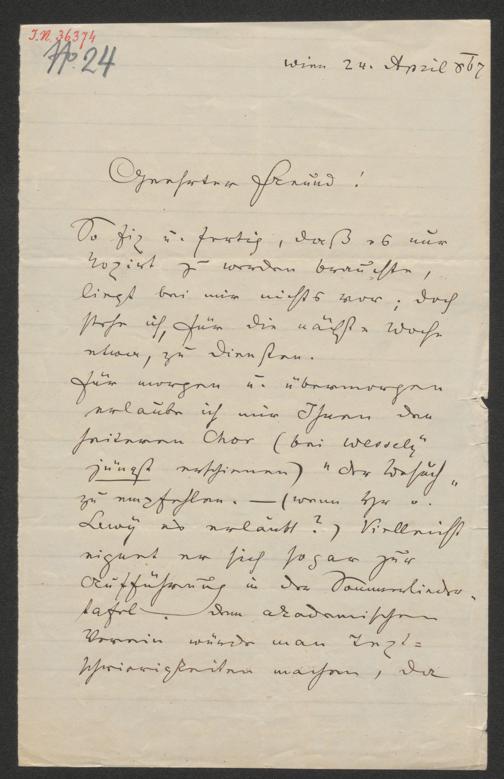 I.N. 36374
No. 24
Wien 24. April 867
Geehrter Freund!
So fix u. fertig, daß es nur
kopirt zu werden brauchte,
liegt bei mir nichts vor; doch
stehe ich, für die nächste Woche
etwa, zu Diensten.
Für morgen u. übermorgen
erlaube ich mir Ihnen den
heiteren Chor (bei Wessely
jüngst erschienen) "der Besuch"
zu empfehlen. — (wenn Hr v.
Lewy es erlaubt?) Vielleicht
eignet er sich sogar zur
Aufführung in der Sommerlieder-
tafel. — dem akademischen
Verein würde man Text=
schwierigkeiten machen, da